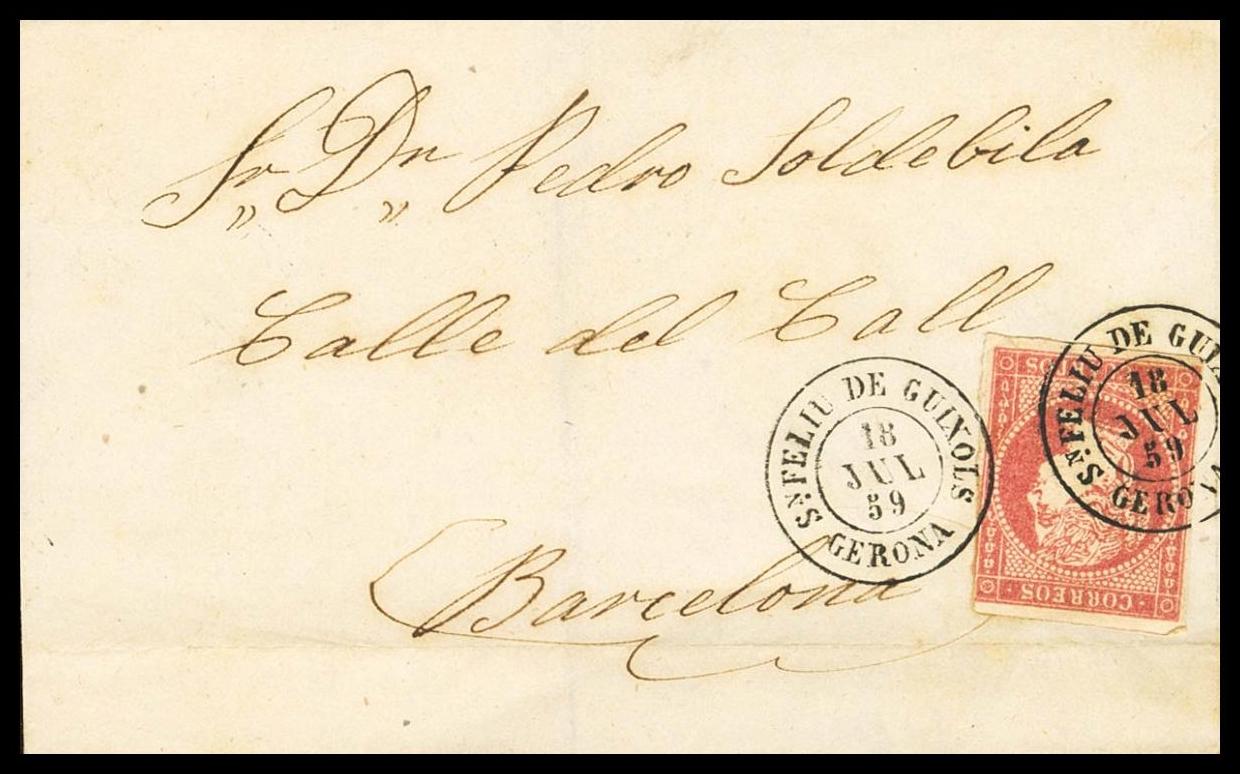 Sr„ Dn„ Pedro Soldebila
Calle del Call
Barcelona
Sn. FELIU DE GUIXOLS
18
JUL
59
GERONA
Sn. FELIU DE GUIX
18
JUL
59
GERONA
CORREOS